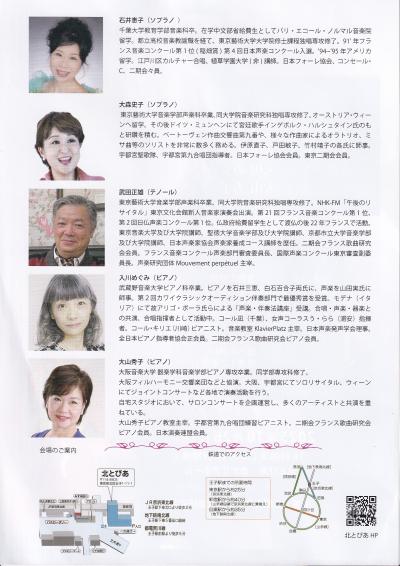 石井恵子（ソプラノ）
千葉大学教育学部音楽科卒。在学中文部省給費生としてパリ・エコール・ノルマル音楽院
留学。都立高校音楽教諭職を経て、東京藝術大学大学院修士課程独唱専修修了。91'年フラ
ンス音楽コンクール第1位（稲畑賞）第4回日本声楽コンクール入選。'94~95年アメリカ
留学。江戸川区カルチャー合唱、植草学園大学（非）講師。日本フォーレ協会、コンセール・
C、二期会々員。
大森史子（ソプラノ）
東京藝術大学音楽学部声楽科卒業、同大学院音楽研究科独唱専攻修了。オーストリア・ウィー
ンへ留学、その後ドイツ・ミュンヘンにて宮廷歌手インゲボルク・ハルシュタイン氏のも
と研鑽を積む。ベートーヴェン作曲交響曲第九番や、様々な作曲家によるオラトリオ、ミ
サ曲等のソリストを非常に数多く務める。伊原直子、戸田敏子、竹村靖子の各氏に師事。
宇都宮聖歌隊、宇都宮第九合唱団指導者。日本フォーレ協会会員。東京二期会会員。
武田正雄（テノール）
東京藝術大学音楽学部声楽科卒業。同大学院音楽研究科独唱専攻修了。NHK-FM「午後のリ
サイタル」東京文化会館新人音楽家演奏会出演。第21回フランス音楽コンクール第1位。
第2回日仏声楽コンクール第1位。仏政府給費留学生として渡仏の後22年フランスで活動。
東京音楽大学及び大学院講師、聖徳大学音楽学部及び大学院講師、京都市立大学音楽学部
及び大学院講師、日本声楽家協会声楽家養成コース講師を歴任。二期会フランス歌曲研究
会会員。フランス音楽コンクール声楽部門審査委員長、国際声楽コンクール東京審査副委
員長。声楽研究団体 Mouvement perpétuel 主宰。
入川めぐみ（ピアノ）
武蔵野音楽大学ピアノ科卒業。ピアノを石井三恵、白石百合子両氏に、声楽を山田実氏に
師事。第2回カワイクラシックオーディション伴奏部門で最優秀賞を受賞。モデナ（イタ
リア）にて故アリゴ・ポーラ氏らによる「声楽・伴奏法講座」受講。合唱・声楽・器楽と
の共演、合唱指揮者として活動中。コール凪（千葉）、女声コーラスうらら（浦安）指揮
者。コール・キリエ（川崎）ピアニスト。音楽教室 KlavierPlatz 主宰。日本声楽発声学会理事、
全日本ピアノ指導者協会正会員。二期会フランス歌曲研究会ピアノ会員。
大山秀子（ピアノ）
大阪音楽大学 器楽学科音楽学部ピアノ専攻卒業。同学部専攻科修了。
大阪フィルハーモニー交響楽団などと協演。大阪、宇都宮にてソロリサイタル、ウィーン
にてジョイントコンサートなど各地で演奏活動を行う。
自宅スタジオにおいて、サロンコンサートを企画運営し、多くのアーティストと共演を重
ねている。
大山秀子ピアノ教室主宰。宇都宮第九合唱団練習ピアニスト。二期会フランス歌曲研究会
ピアノ会員。日本演奏連盟会員。
会場のご案内
鉄道でのアクセス
北とぴあ
JR京浜東北線
地下鉄南北線
都電荒川線
王子駅までの所要時間
北とぴあ HP